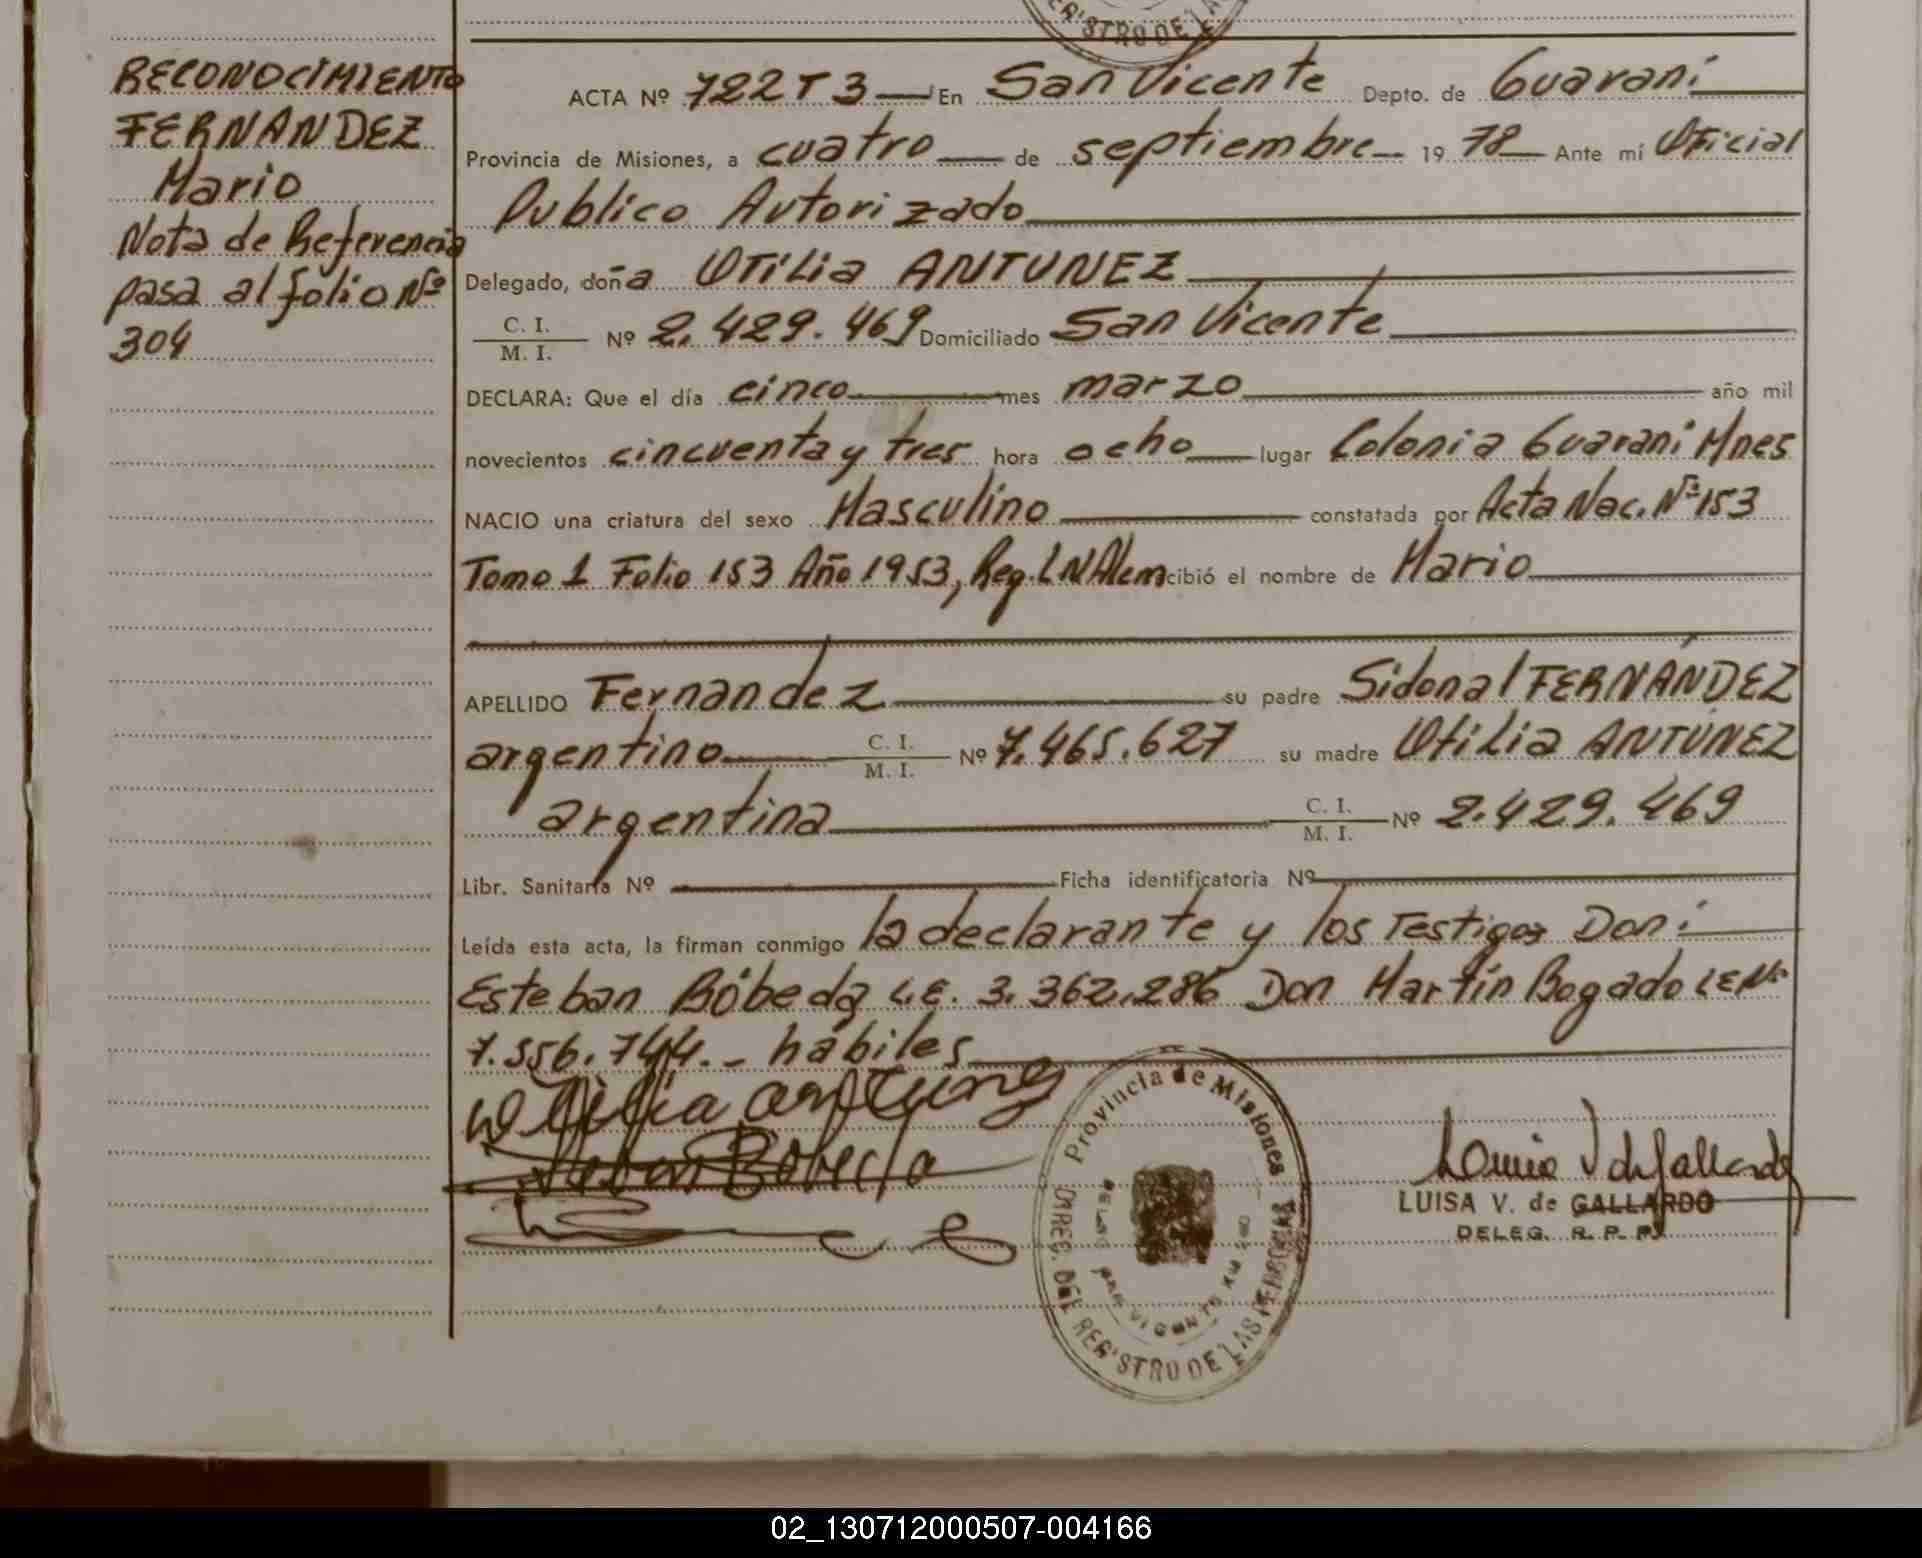 RECONOCIMIENTO
FERNANDEZ
Mario
Nota de Referencia
pasa al folio Nº
304
REGISTRO DE LAS
ACTA Nº 722 T 3 En San Vicente Depto. de Guaraní
Provincia de Misiones, a cuatro de septiembre 19 78 Ante mí Oficial
Publico Autorizado
Delegado, doña Otilia ANTUNEZ
C. I.
M. I. Nº 2.429.469 Domiciliado San Vicente
DECLARA: Que el día cinco mes marzo año mil
novecientos cincuenta y tres hora ocho lugar Colonia Guaraní Mnes
NACIO una criatura del sexo Masculino constatada por Acta Nac. Nº 153
Tomo 1 Folio 153 Año 1953, Reg. L N Alem cibió el nombre de Mario
APELLIDO Fernandez su padre Sidonal FERNÁNDEZ
argentino C. I.
M. I. Nº 7.465.627 su madre Otilia ANTÚNEZ
argentina C. I.
M. I. Nº 2.429.469
Libr. Sanitaria Nº Ficha identificatoria Nº
Leída esta acta, la firman conmigo la declarante y los Testigos Don:
Esteban Bóbeda L.E. 3.362.286 Don Martín Bogado L E Nº
7.556.744.- hábiles
Provincia de Misiones
DIREC. DEL REGISTRO DE LAS PERSONAS
SAN VICENTE
LUISA V. de GALLARDO
DELEG. R. P. P.
02_130712000507-004166